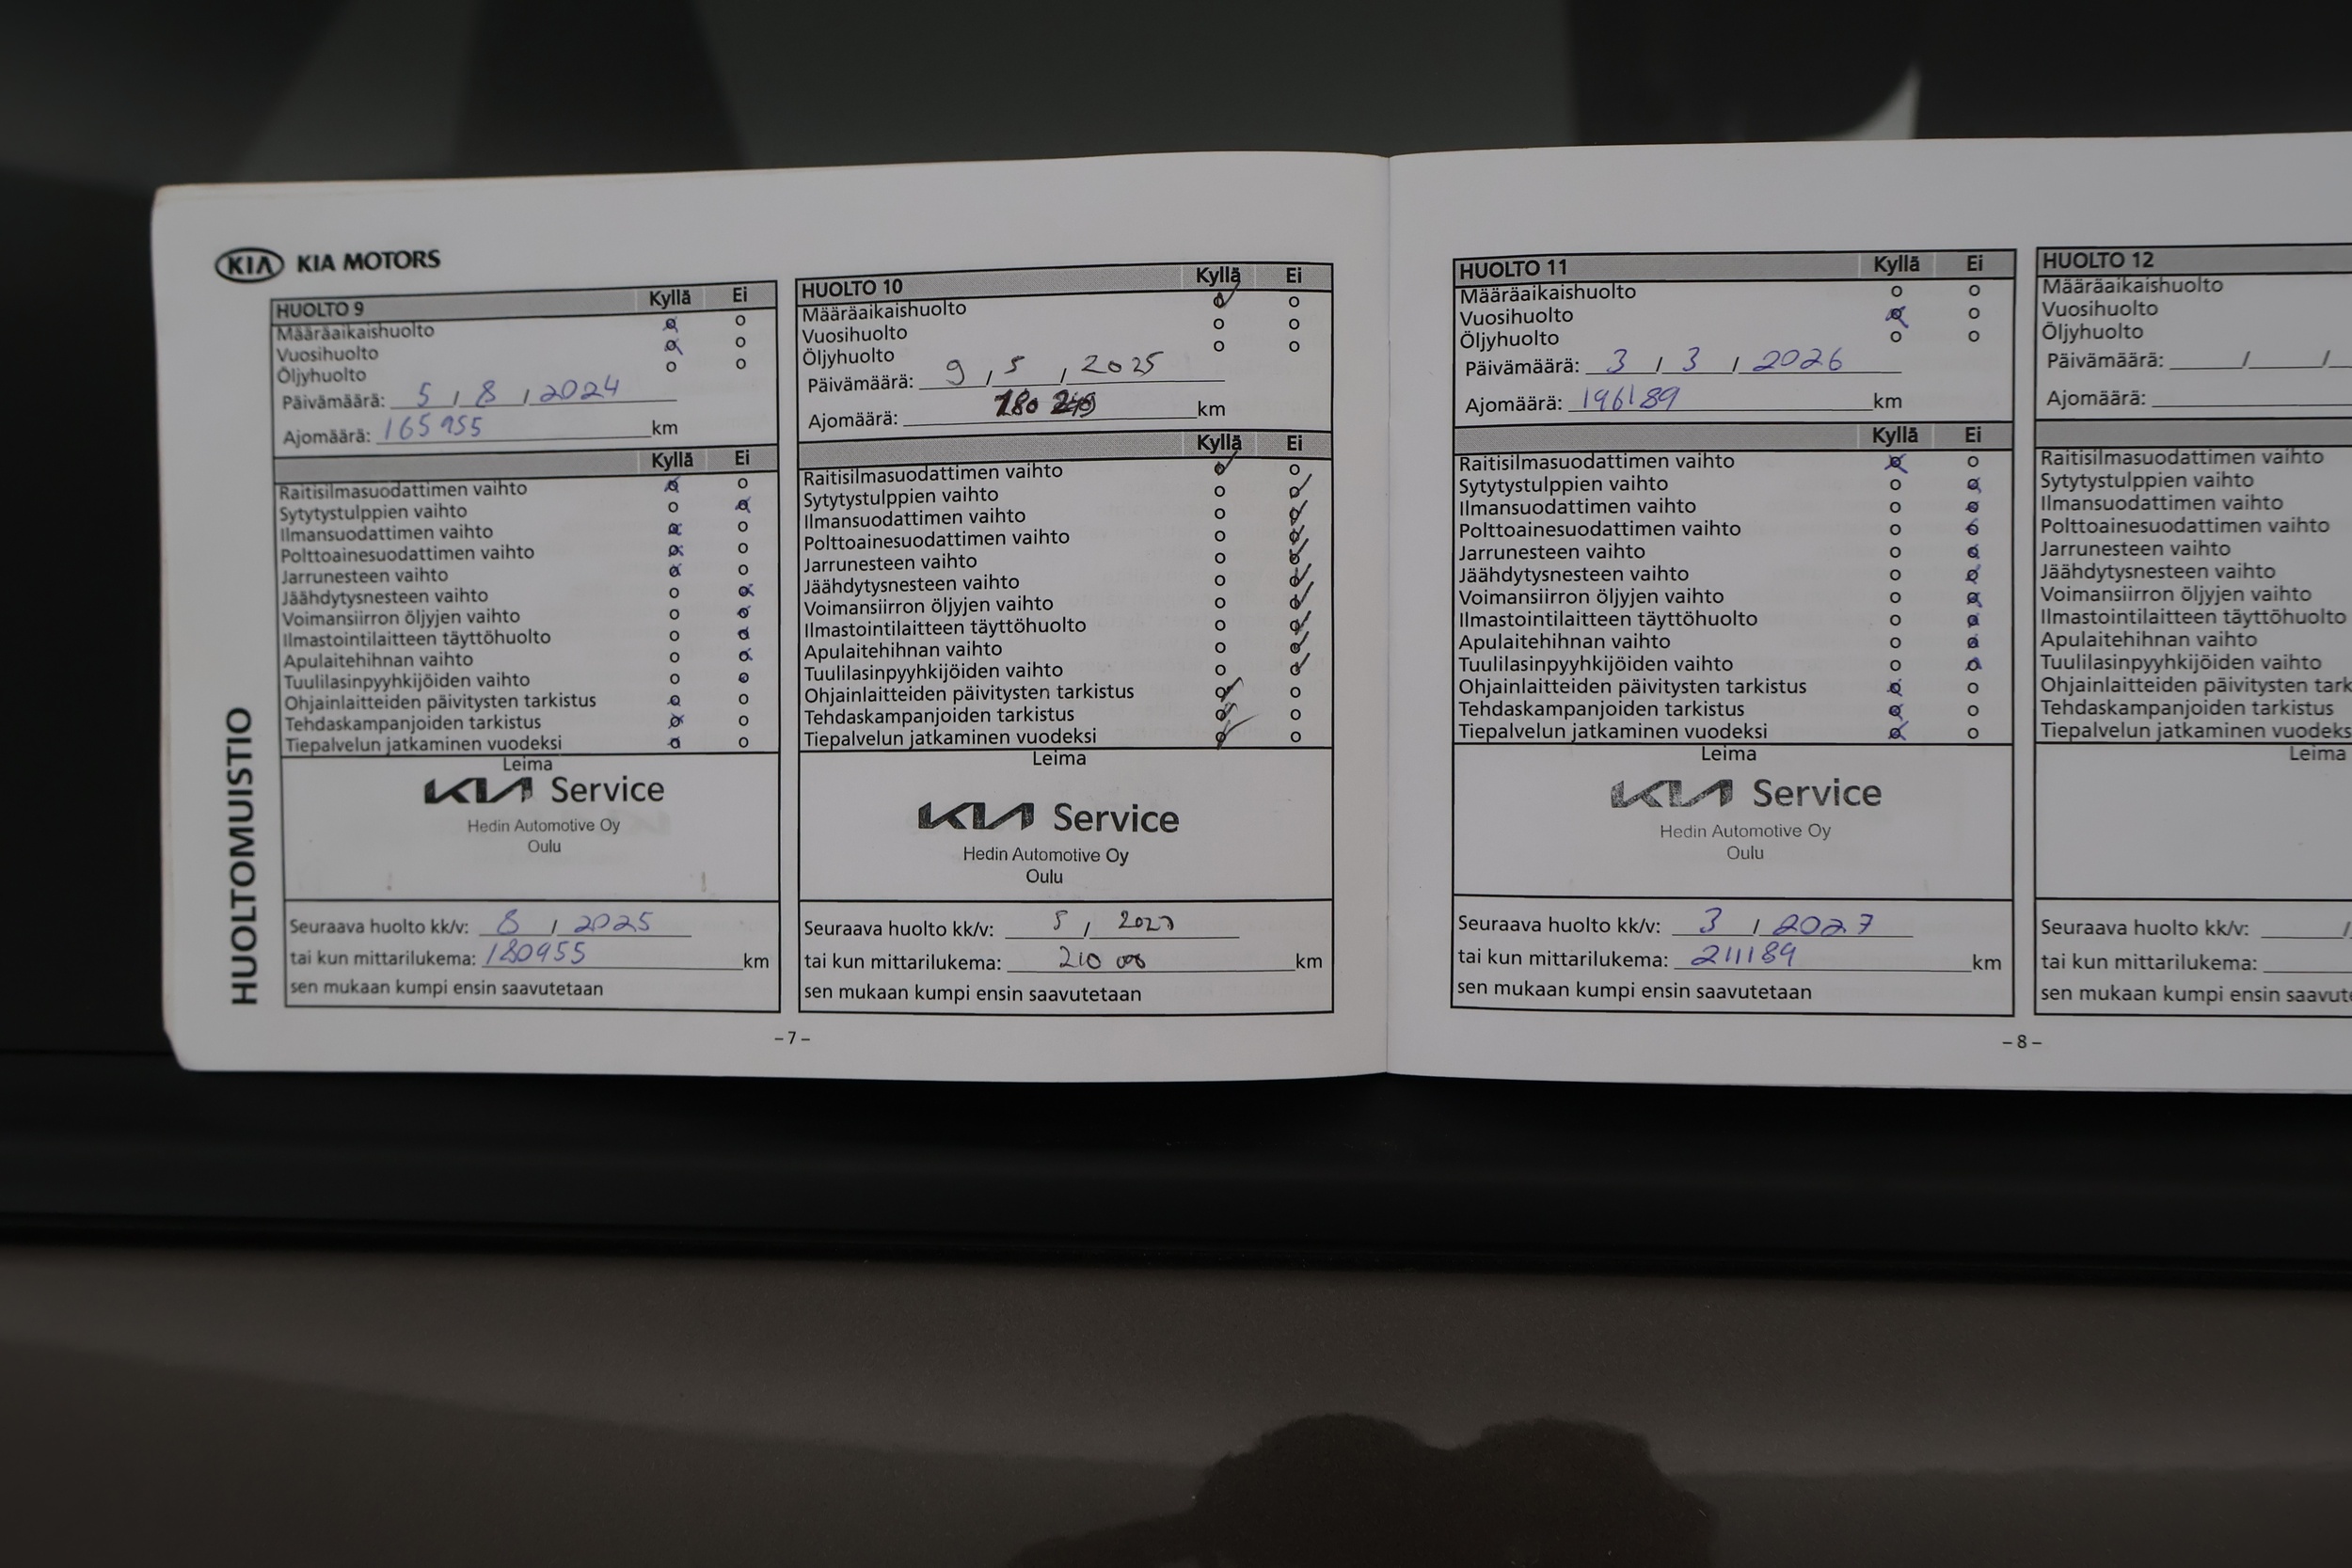 KIA KIA MOTORS
HUOLTOMUISTIO
HUOLTO 9 Kyllä Ei
Määräaikaishuolto
Vuosihuolto
Öljyhuolto
Päivämäärä: 5 / 8 / 2024
Ajomäärä: 165955 km
Kyllä Ei
Raitisilmasuodattimen vaihto
Sytytystulppien vaihto
Ilmansuodattimen vaihto
Polttoainesuodattimen vaihto
Jarrunesteen vaihto
Jäähdytysnesteen vaihto
Voimansiirron öljyjen vaihto
Ilmastointilaitteen täyttöhuolto
Apulaitehihnan vaihto
Tuulilasinpyyhkijöiden vaihto
Ohjainlaitteiden päivitysten tarkistus
Tehdaskampanjoiden tarkistus
Tiepalvelun jatkaminen vuodeksi
Leima
KIA Service
Hedin Automotive Oy
Oulu
Seuraava huolto kk/v: 8 / 2025
tai kun mittarilukema: 180955 km
sen mukaan kumpi ensin saavutetaan
HUOLTO 10 Kyllä Ei
Määräaikaishuolto
Vuosihuolto
Öljyhuolto
Päivämäärä: 9 / 5 / 2025
Ajomäärä: 180 km
Kyllä Ei
Raitisilmasuodattimen vaihto
Sytytystulppien vaihto
Ilmansuodattimen vaihto
Polttoainesuodattimen vaihto
Jarrunesteen vaihto
Jäähdytysnesteen vaihto
Voimansiirron öljyjen vaihto
Ilmastointilaitteen täyttöhuolto
Apulaitehihnan vaihto
Tuulilasinpyyhkijöiden vaihto
Ohjainlaitteiden päivitysten tarkistus
Tehdaskampanjoiden tarkistus
Tiepalvelun jatkaminen vuodeksi
Leima
KIA Service
Hedin Automotive Oy
Oulu
Seuraava huolto kk/v: 5 /
tai kun mittarilukema: 210 000 km
sen mukaan kumpi ensin saavutetaan
– 7 –
HUOLTO 11 Kyllä Ei
Määräaikaishuolto
Vuosihuolto
Öljyhuolto
Päivämäärä: 3 / 3 / 2026
Ajomäärä: 196189 km
Kyllä Ei
Raitisilmasuodattimen vaihto
Sytytystulppien vaihto
Ilmansuodattimen vaihto
Polttoainesuodattimen vaihto
Jarrunesteen vaihto
Jäähdytysnesteen vaihto
Voimansiirron öljyjen vaihto
Ilmastointilaitteen täyttöhuolto
Apulaitehihnan vaihto
Tuulilasinpyyhkijöiden vaihto
Ohjainlaitteiden päivitysten tarkistus
Tehdaskampanjoiden tarkistus
Tiepalvelun jatkaminen vuodeksi
Leima
KIA Service
Hedin Automotive Oy
Oulu
Seuraava huolto kk/v: 3 / 2027
tai kun mittarilukema: 211189 km
sen mukaan kumpi ensin saavutetaan
HUOLTO 12
Määräaikaishuolto
Vuosihuolto
Öljyhuolto
Päivämäärä: / /
Ajomäärä:
Raitisilmasuodattimen vaihto
Sytytystulppien vaihto
Ilmansuodattimen vaihto
Polttoainesuodattimen vaihto
Jarrunesteen vaihto
Jäähdytysnesteen vaihto
Voimansiirron öljyjen vaihto
Ilmastointilaitteen täyttöhuolto
Apulaitehihnan vaihto
Tuulilasinpyyhkijöiden vaihto
Ohjainlaitteiden päivitysten tark
Tehdaskampanjoiden tarkistus
Tiepalvelun jatkaminen vuodeks
Leima
Seuraava huolto kk/v: /
tai kun mittarilukema:
sen mukaan kumpi ensin saavute
– 8 –